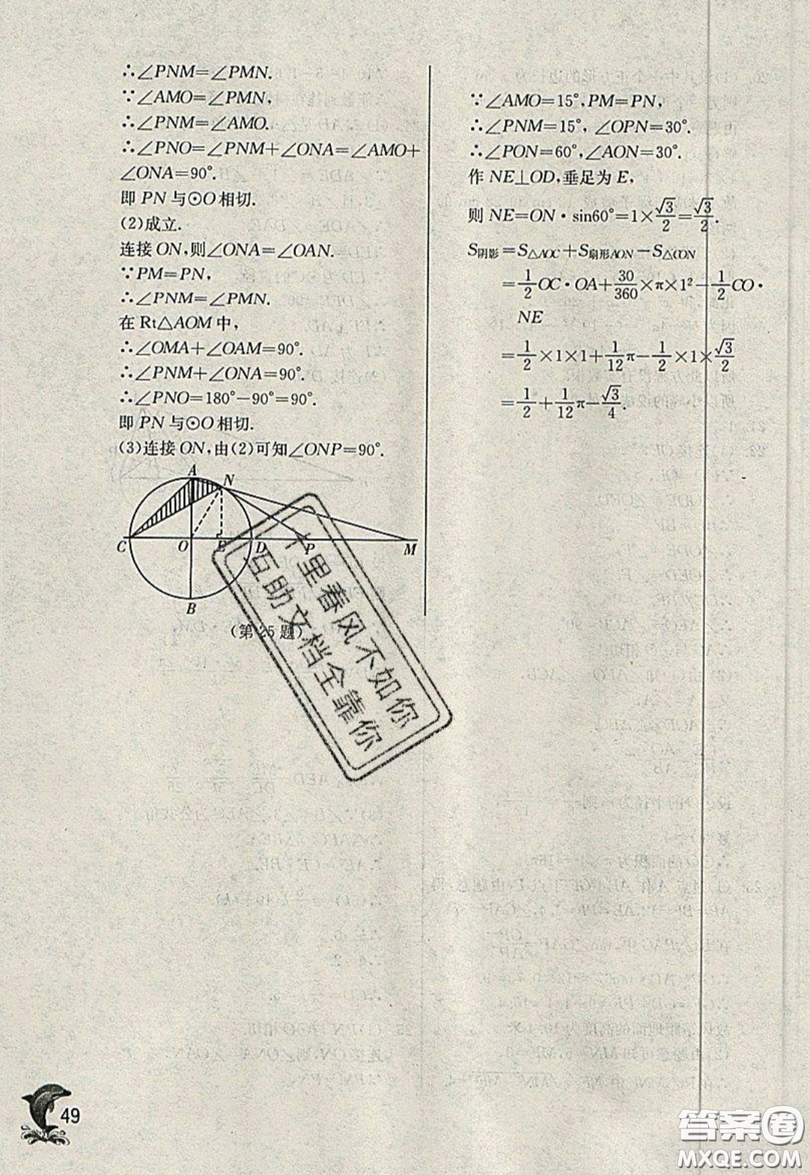 ∴∠PNM=∠PMN.
∵∠AMO=∠PMN,
∴∠PNM=∠AMO.
∴∠PNO=∠PNM+∠ONA=∠AMO+
∠ONA=90°.
即 PN 与⊙O 相切.
(2)成立.
连接 ON,则∠ONA=∠OAN.
∵PM=PN,
∴∠PNM=∠PMN.
在 Rt△AOM 中,
∴∠OMA+∠OAM=90°.
∴∠PNM+∠ONA=90°.
∴∠PNO=180°-90°=90°.
即 PN 与⊙O 相切.
(3)连接 ON,由(2)可知∠ONP=90°.
A
N
C
O
E
D
P
M
B
(第 25 题)
∵∠AMO=15°,PM=PN,
∴∠PNM=15°,∠OPN=30°.
∴∠PON=60°,∠AON=30°.
作 NE⊥OD,垂足为 E,
则 NE=ON·sin60°=1×√3/2=√3/2.
S阴影=S△AOC+S扇形AON-S△CON
=1/2 OC·OA+30/360×π×1²-1/2 CO·
NE
=1/2×1×1+1/12π-1/2×1×√3/2
=1/2+1/12π-√3/4.
十里春风不如你
互助文档全靠你
49
答案圈
MXQE.COM